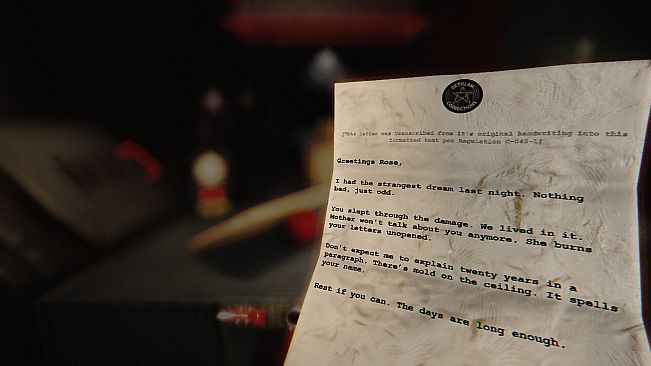 BETHLAM
CORRECTIONS
[This letter was transcribed from it's original handwriting into this
formatted text per Regulation C-042-1]
Greetings Rose,
I had the strangest dream last night. Nothing
bad, just odd.
You slept through the damage. We lived in it.
Mother won't talk about you anymore. She burns
your letters unopened.
Don't expect me to explain twenty years in a
paragraph. There's mold on the ceiling. It spells
your name.
Rest if you can. The days are long enough.